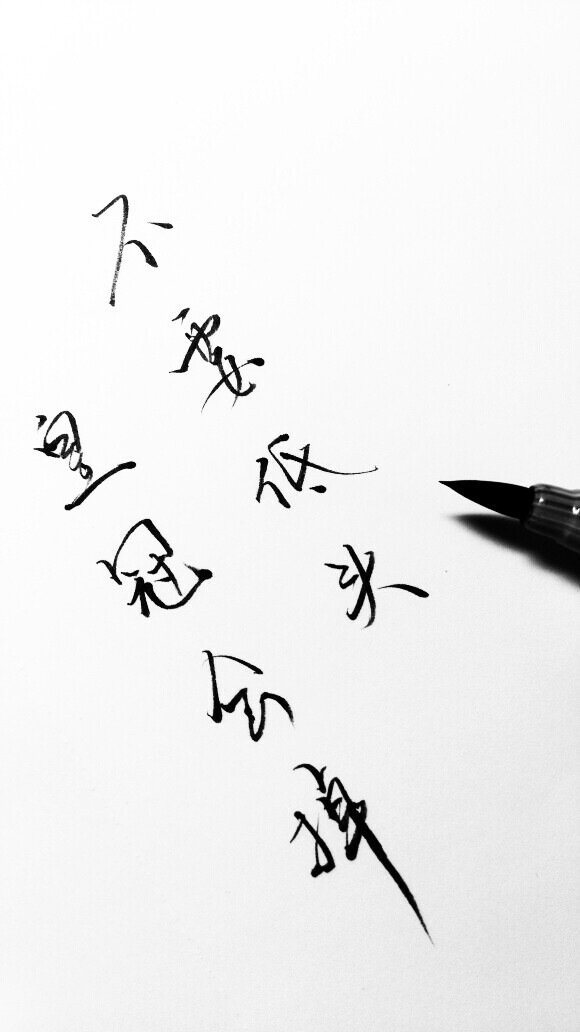 不要低头
皇冠会掉